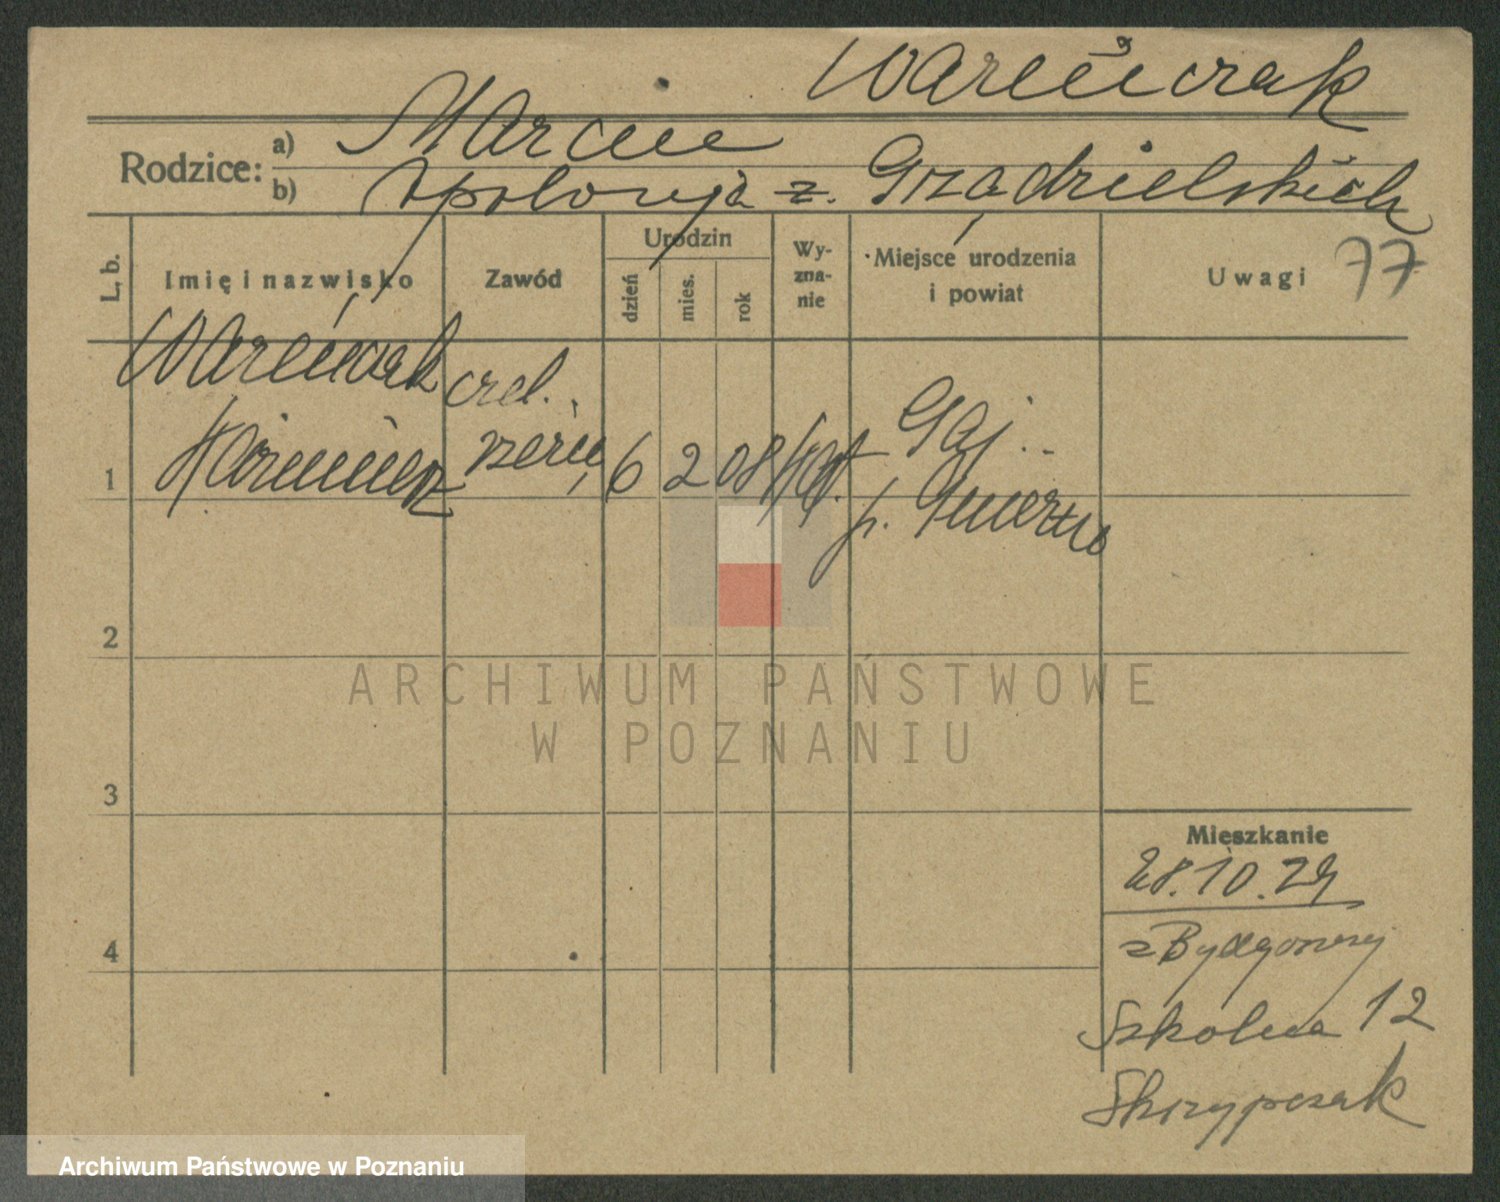 Wareńczak
Rodzice: a) Marcin
b) Apolonja z. Grządzielskich
L. b. Imię i nazwisko Zawód Urodzin dzień mies. rok Wy-zna-nie Miejsce urodzenia i powiat Uwagi 77
Wareńczak czel.
1 Kazimierz rzeźn. 6 2 08 kat. Gaj
p.
2
3
4
Mieszkanie
28.10.29
z Bydgoszczy
Szkolna 12
Skrzypczak
ARCHIWUM PAŃSTWOWE
W POZNANIU
Archiwum Państwowe w Poznaniu